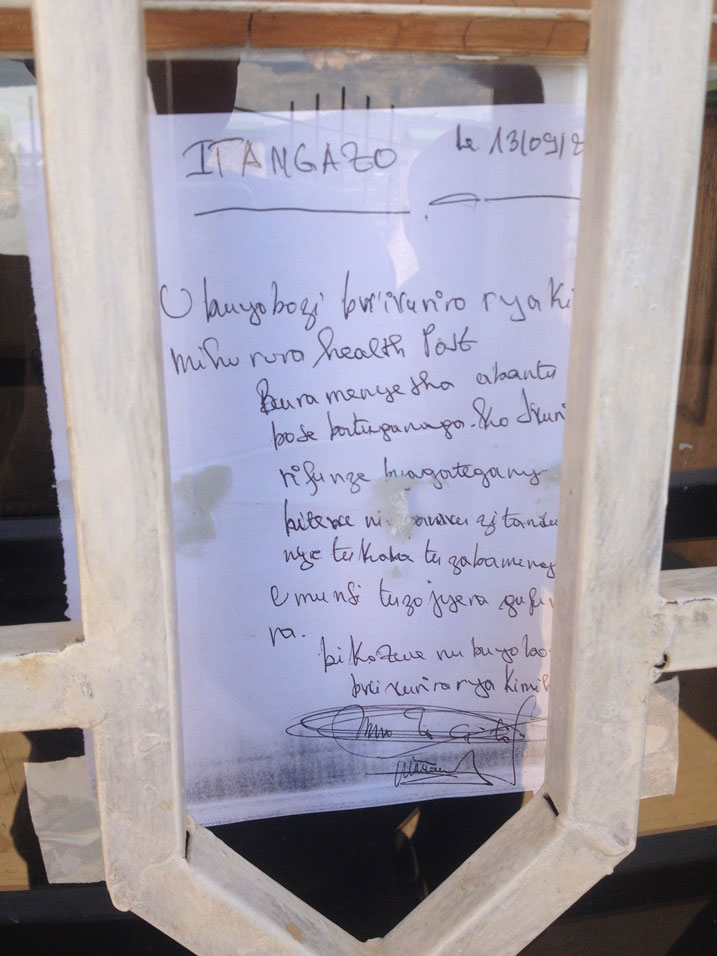 ITANGAZO Le 13/09/2
Ubuyobozi bw'ivuriro rya Ki
mihurura health Post
Buramenyesha abantu
bose batuganaga. ko ivuri
rifunze
bitewe ni zitandu
nye tukaba tuzabameny
e munsi tuzojyera gufu
ra.
bikozwe nubuyobo
bw'ivuriro rya kimih